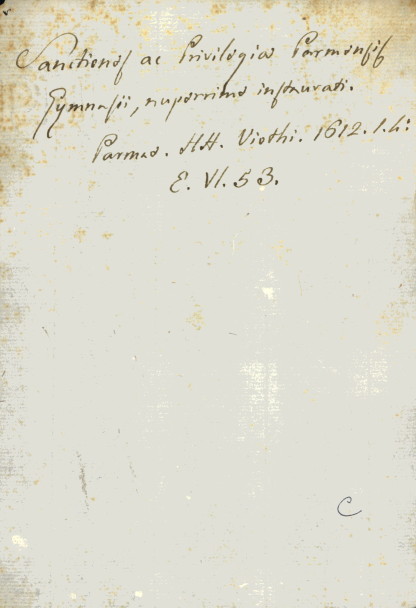 Sanctiones ac Privilegia Parmensis
Gymnasii, nuperrime instaurati.
Parmae. HH. Viothi. 1612. 1. 4:
E. VI. 53.
C